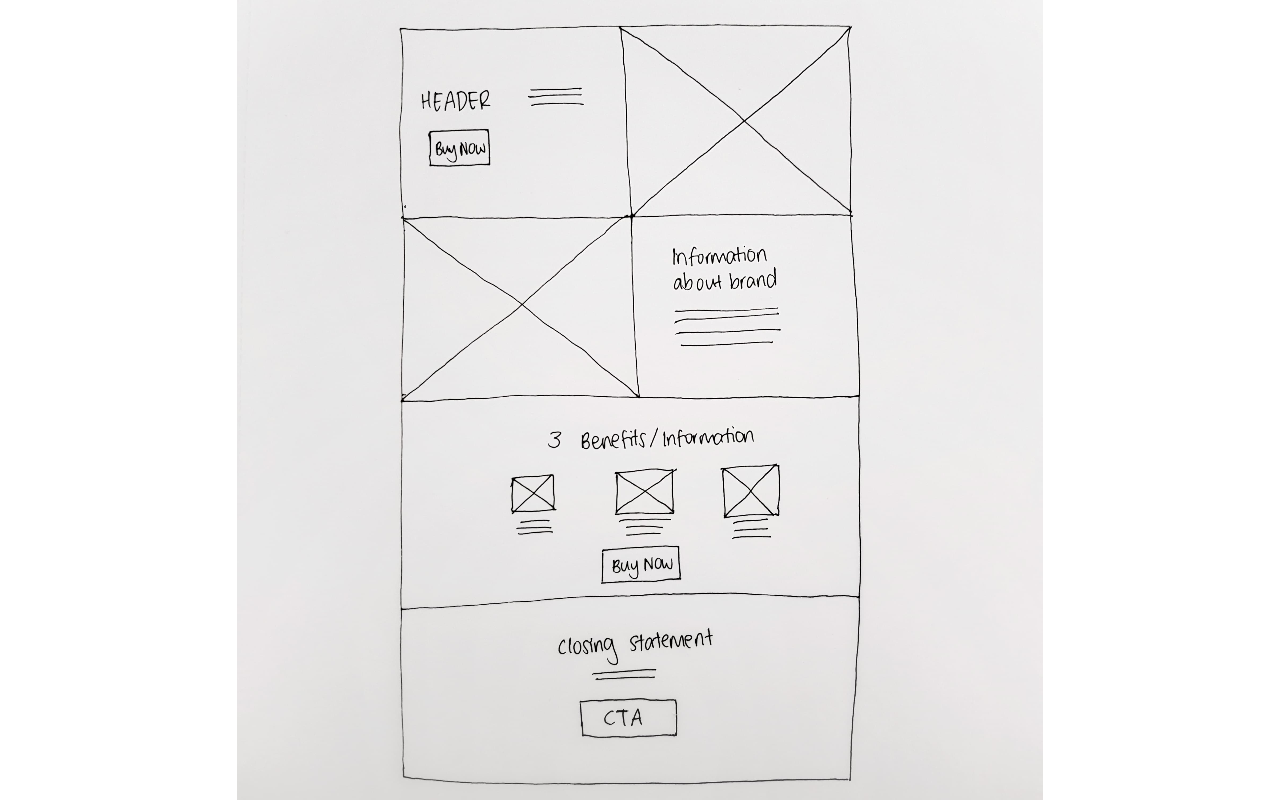 HEADER
Buy Now
Information
about brand
3 Benefits/Information
Buy Now
Closing statement
CTA